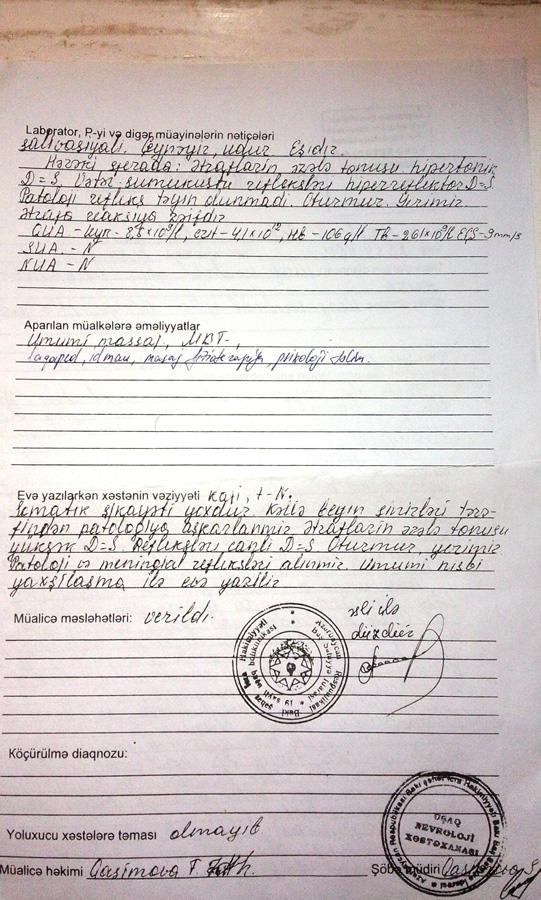 Laborator, P-yi və digər müayinələrin nəticələri
salivasiyalı. Çeynəyir, udur Eşidir.
Hərəki sferada: Ətrafların əzələ tonusu hipertonik
D=S. Vətər-sümüküstü refleksləri hiperreflektor D=S
Patoloji refleks təyin olunmadı. Oturmur. Yerimir.
Ətrafa reaksiya zəifdir
SUA - N
NUA - N
Aparılan müalkələrə əməliyyatlar
Ümumi massaj, MBT-,
loqoped, idman, masaj psixoloji
Evə yazılarkən xəstənin vəziyyəti kafi, t-N.
Somatik şikayəti yoxdur Kəllə beyin sinirləri tərə-
findən patologiya aşkarlanmır Ətrafların əzələ tonusu
yüksək D=S Refleksləri canlı D=S Oturmur, yerimir
Patoloji və meningial refleksləri alınmır. Ümumi nisbi
yaxşılaşma ilə evə yazılır
Müalicə məsləhətləri: verildi.
əsli ilə
düzdür
Köçürülmə diaqnozu:
UŞAQ
NEVROLOJİ
XƏSTƏXANASI
Yoluxucu xəstələrə təması olmayıb
Müalicə həkimi Qasimova T. Şöbə müdiri